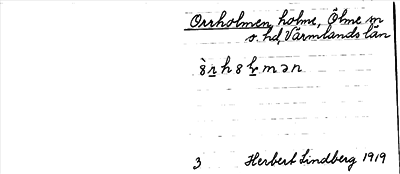 Orrholmen, holme, Ölme sn
o. hd, Värmlands län
3 Herbert Lindberg 1919